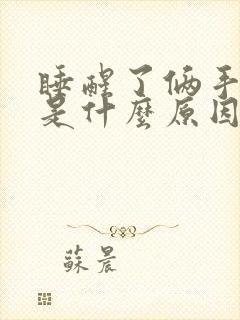 睡醒了俩手
是什麼原因
蘇晨